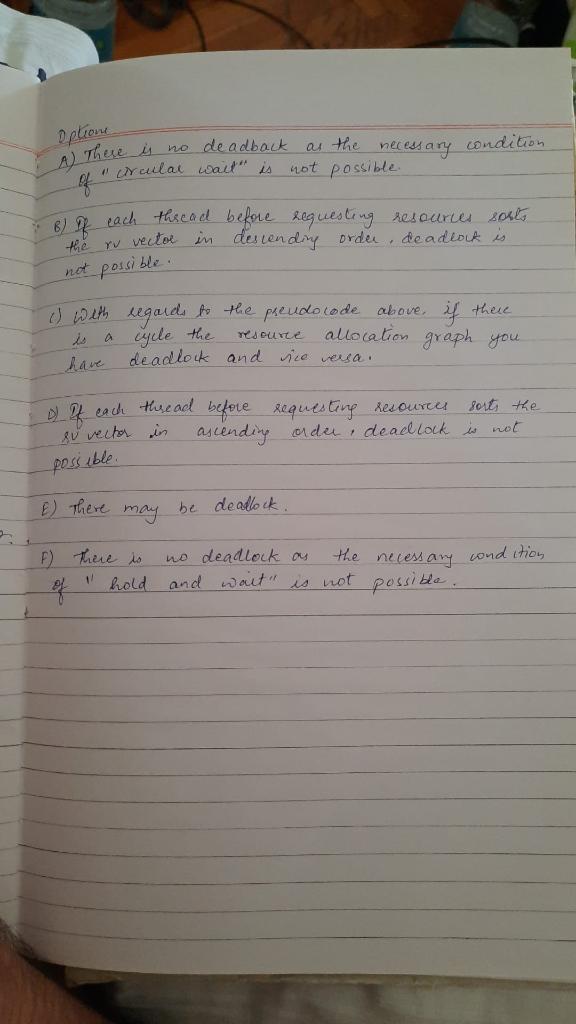 Options
A) There is no deadback as the necessary condition
of "circular wait" is not possible.
B) If each thread before requesting resources sorts
the rv vector in descending order, deadlock is
not possible.
C) With regards to the pseudocode above, if there
is a cycle the resource allocation graph you
have deadlock and vice versa.
D) If each thread before requesting resources sorts the
rv vector in ascending order, deadlock is not
possible.
E) There may be deadlock.
F) There is no deadlock as the necessary condition
of "hold and wait" is not possible.